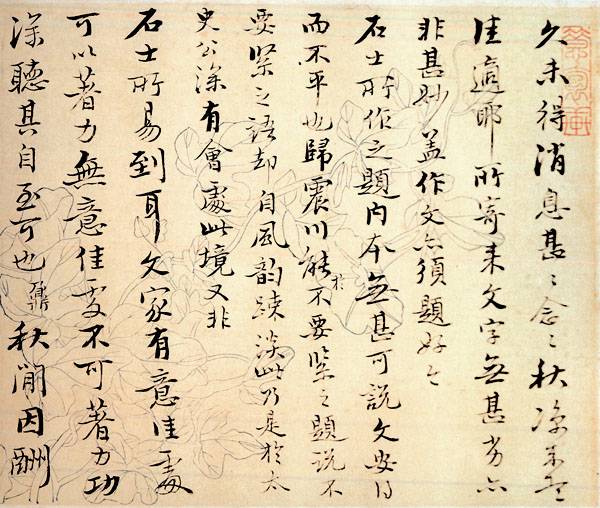 久未得消息甚〻念〻秋涼來想
佳適耶所寄來文字無甚劣亦
非甚妙蓋作文亦須題好今
石士所作之題內本無甚可說文安得
而不平也歸震川能於不要緊之題說不
要緊之語却自風韵踈淡此乃是於太
史公深有會處此境又非
石士所易到耳文家有意佳處
可以著力無意佳處不可著力功
深聽其自至可也鼐秋閒因酬